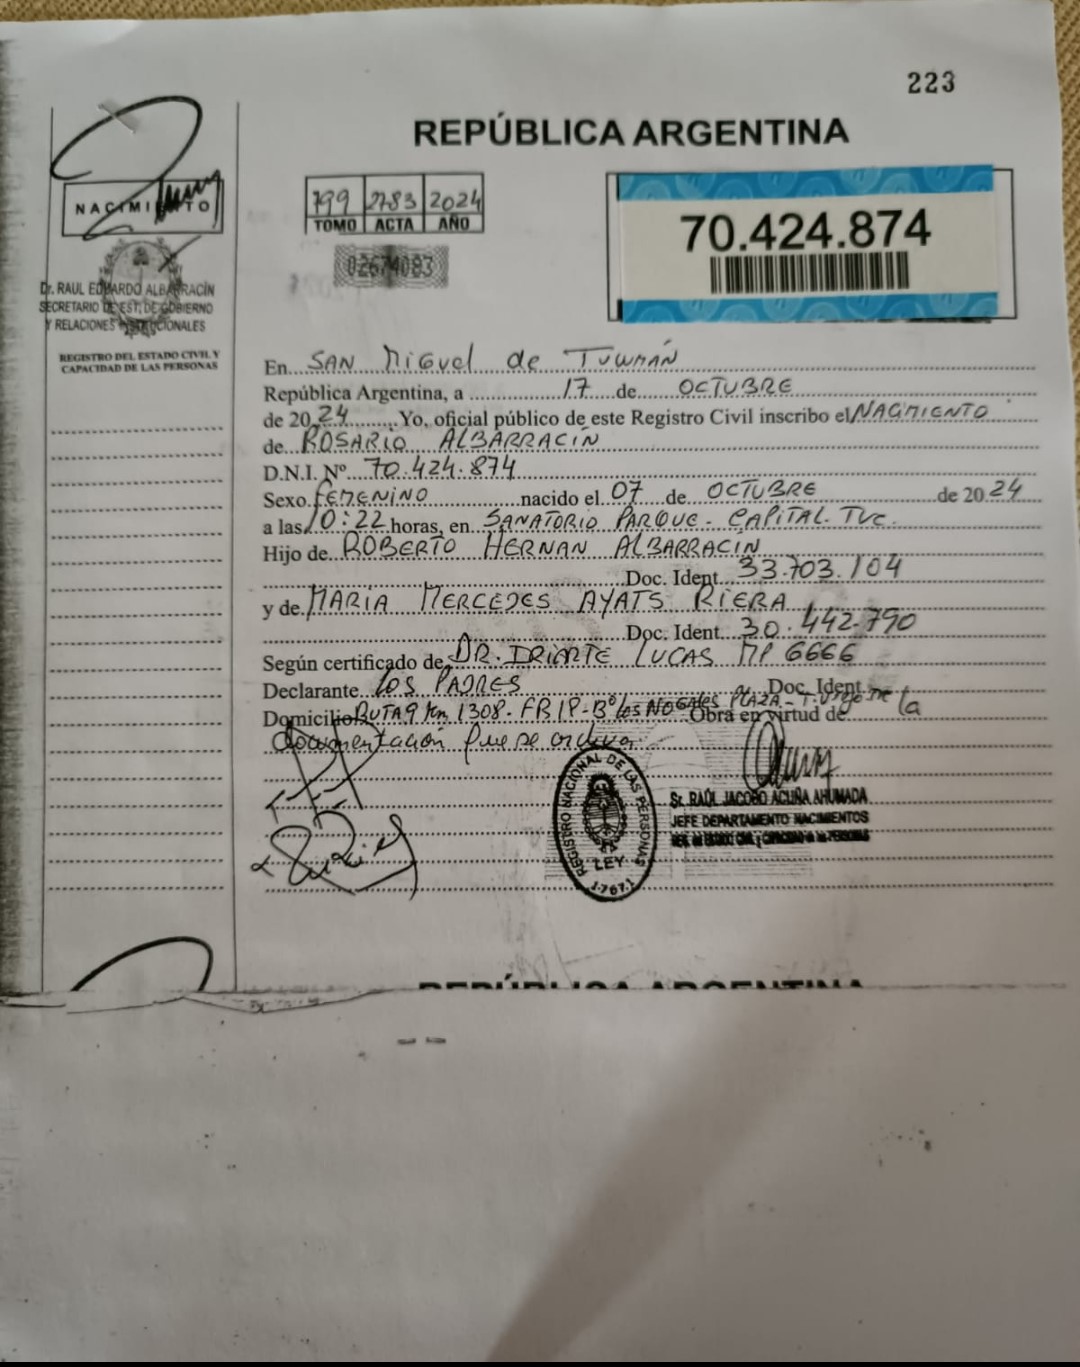 223
REPÚBLICA ARGENTINA
NACIMIENTO
799 2783 2024
TOMO ACTA AÑO
02674083
70.424.874
Dr. RAUL EDUARDO ALBARRACÍN
SECRETARIO DE EST. DE GOBIERNO
Y RELACIONES INSTITUCIONALES
REGISTRO DEL ESTADO CIVIL Y
CAPACIDAD DE LAS PERSONAS
En SAN MIGUEL de TUCUMÁN
República Argentina, a 17 de OCTUBRE
de 2024 Yo, oficial público de este Registro Civil inscribo el NACIMIENTO
de ROSARIO ALBARRACÍN
D.N.I. Nº 70.424.874
Sexo FEMENINO nacido el 07 de OCTUBRE de 2024
a las 10:22 horas, en SANATORIO PARQUE - CAPITAL - TUC.
Hijo de ROBERTO HERNAN ALBARRACÍN
Doc. Ident. 33.703.104
y de MARÍA MERCEDES AYATS RIERA
Doc. Ident. 30.442.790
Según certificado de DR. IRIARTE LUCAS MP 6666
Declarante LOS PADRES Doc. Ident.
Domicilio RUTA 9 Km 1308 - FR 1P - Bº LOS NOGALES PLAZA - Obra en virtud de la
documentación que se archiva.
REGISTRO NACIONAL DE LAS PERSONAS
LEY
17671
Sr. RAÚL JACOBO ACUÑA AHUMADA
JEFE DEPARTAMENTO NACIMIENTOS
REG. del ESTADO CIVIL y CAPACIDAD de las PERSONAS
REPÚBLICA ARGENTINA